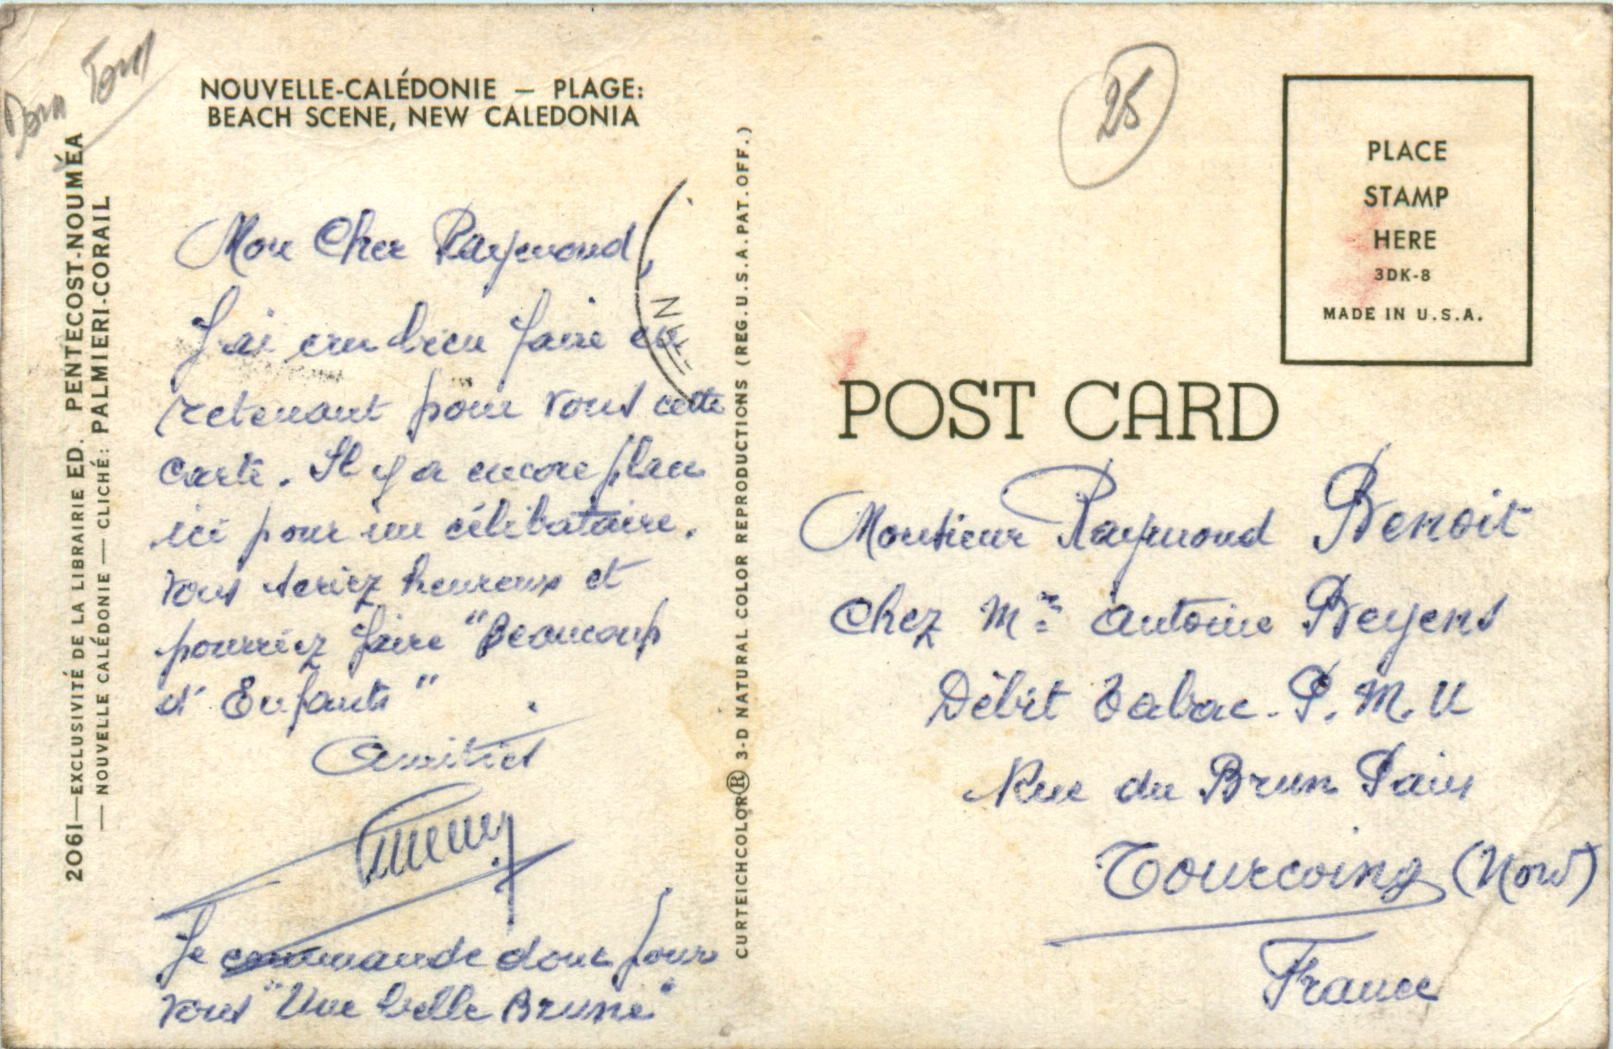 NOUVELLE-CALÉDONIE — PLAGE:
BEACH SCENE, NEW CALEDONIA
2061—EXCLUSIVITÉ DE LA LIBRAIRIE ED. PENTECOST-NOUMÉA
— NOUVELLE CALÉDONIE — CLICHÉ: PALMIERI-CORAIL
Mon Cher Raymond,
J'ai cru bien faire en
retenant pour vous cette
carte. Il y a encore place
ici pour un célibataire.
Vous seriez heureux et
pourriez faire "Beaucoup
d'Enfants"
Amitiés
Je commande donc pour
vous "Une belle Brune"
CURTEICHCOLOR® 3-D NATURAL COLOR REPRODUCTIONS (REG. U.S.A. PAT. OFF.)
25
PLACE
STAMP
HERE
3DK-8
MADE IN U.S.A.
POST CARD
Monsieur Raymond Benoit
Chez Mr Antoine Beyens
Débit Tabac. P.M.U
Rue du Brun Pain
Tourcoing (Nord)
France